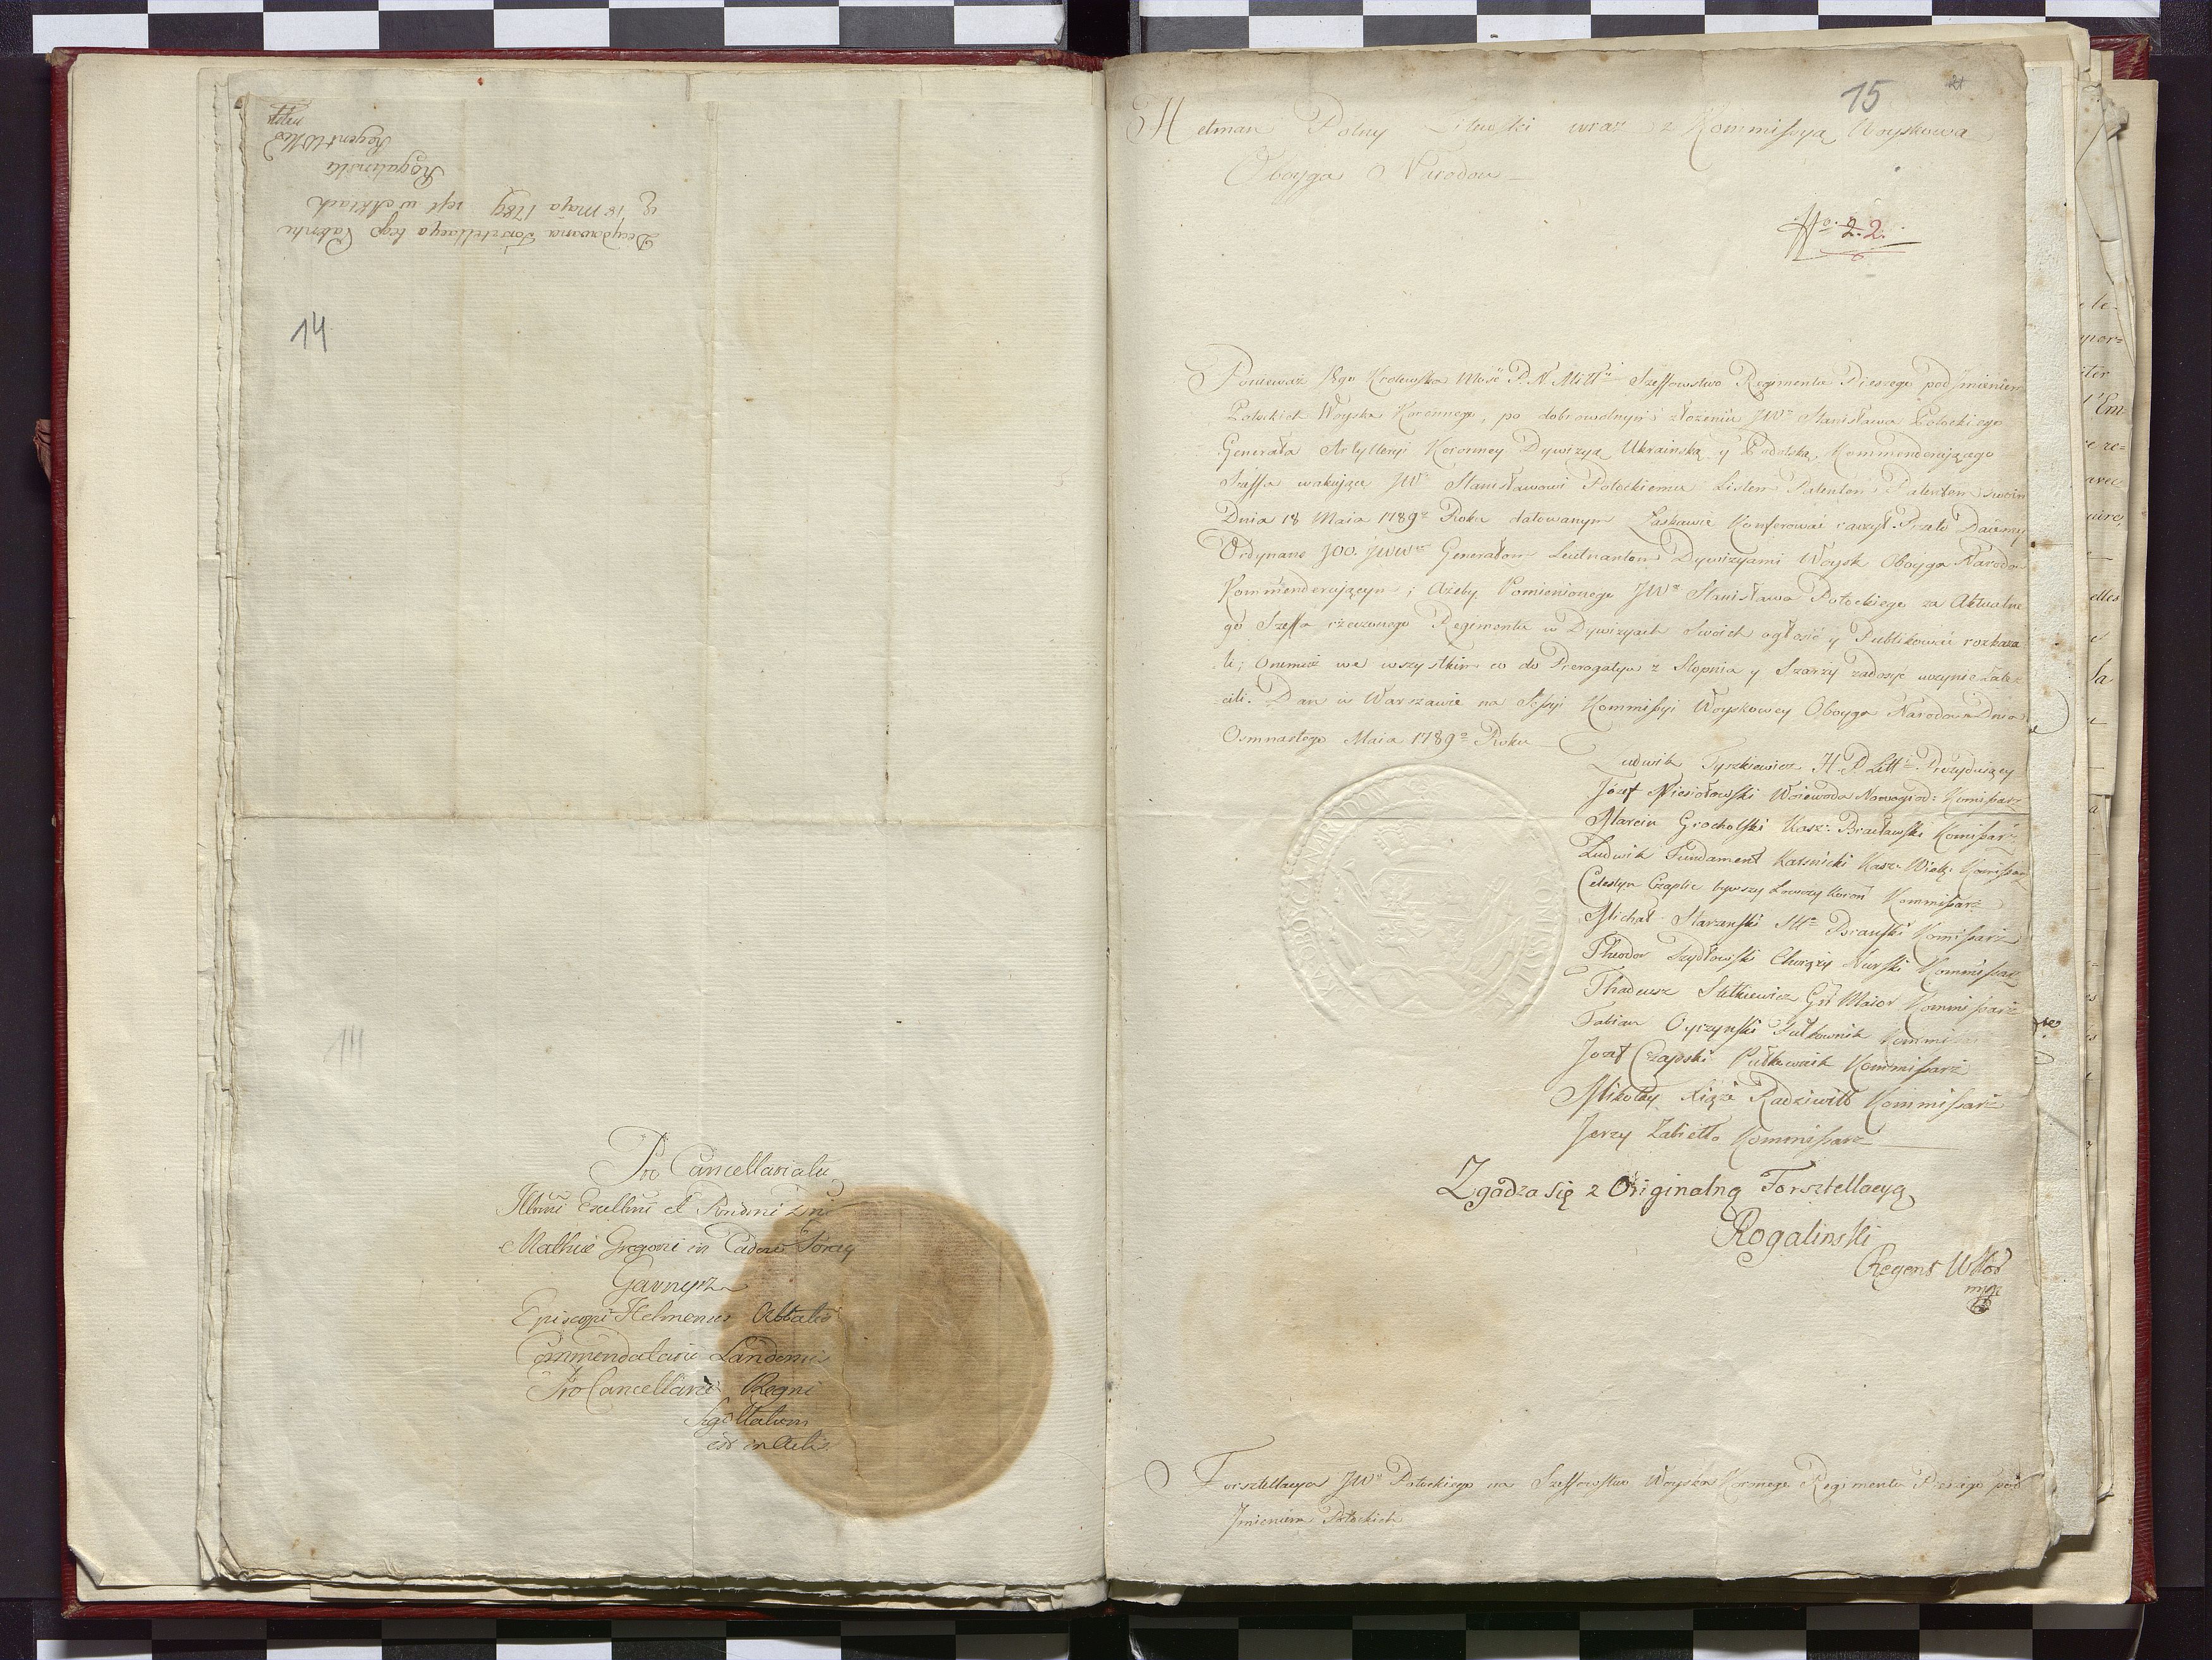 Decydowana Forsztellacya tego Patentu
D. 18 Maja 1789 jest w Aktach
Rogalinski
Regent WKo
mpp
14
Pro Cancellariatu
Illmi Excellmi et Rndmi Dni
Mathiæ Gregorii in Tador
Garnysz
Episcopi Helmensis Abbatis
Commendatarii Landensis
Pro Cancellarii Regni
Sigillatum
est in Actis
15
21
Hetman Polny Litewski wraz z Kommissyą Woyskową
Oboyga Narodow
No. 22.
Ponieważ Jego Krolewska Mość P. N. Miłł Szeffowstwo Regimentu Pieszego pod Jmieniem
Potockich Woyska Koronnego, po dobrowolnym złożeniu JWo Stanisława Potockiego
Generała Artylleryi Koronney Dywizyą Ukrainską y Podolską Kommenderującego
Szeffa wakujące JWo Stanisławowi Potockiemu Listem Patentem Patentem swoim
Dnia 18 Maia 1789o Roku datowanym Łaskawie Konferować raczył. Przeto Daiemy
Ordynans JOO. JWWm Generałom Leutnantom Dywizyami Woysk Oboyga Narodow
Kommenderującym; Ażeby Pomienionego JWo Stanisława Potockiego za Aktualne
go Szeffa rzeczonego Regimentu w Dywizyach Swoich ogłosić y Publikować rozkaza
li; Onemuż we wszystkim co do Prerogatyw z Stopnia y Szarży zadosyć uczynić zale
cili. Dan w Warszawie na Sessyi Kommissyi Woyskowey Oboyga Narodow Dnia
Osmnastego Maia 1789o Roku
Ludwik Tyszkiewicz H. P. Litt Prezyduiący
Józef Niesiołowski Woiewoda Nowogrod: Komissarz
Marcin Grocholski Kasz: Bracławski Komissarz
Ludwik Fundament Karsnicki Kasz: Wielż: Komissarz
Celestyn Czaplic bywszy Łowczy Koron Kommissarz
Michał Starzenski Stta Branski Komissarz
Theodor Szydłowski Chorąży Nurski Kommissarz
Thadeusz Stetkiewicz Gñ Maior Kommissarz
Fabian Oyrzynski Pułkownik Kommissarz
Jozef Czapski Pułkownik Kommissarz
Mikołay Xiąże Radziwiłł Kommissarz
Jerzy Zabiełło Kommissarz
Zgadza się z Originalną Forsztellacyą
Rogalinski
Regent WKo
mpp
Forsztellacya JWo Potockiego na Szeffowstwo Woyska Koronnego Regimentu Pieszego pod
Jmieniem Potockich